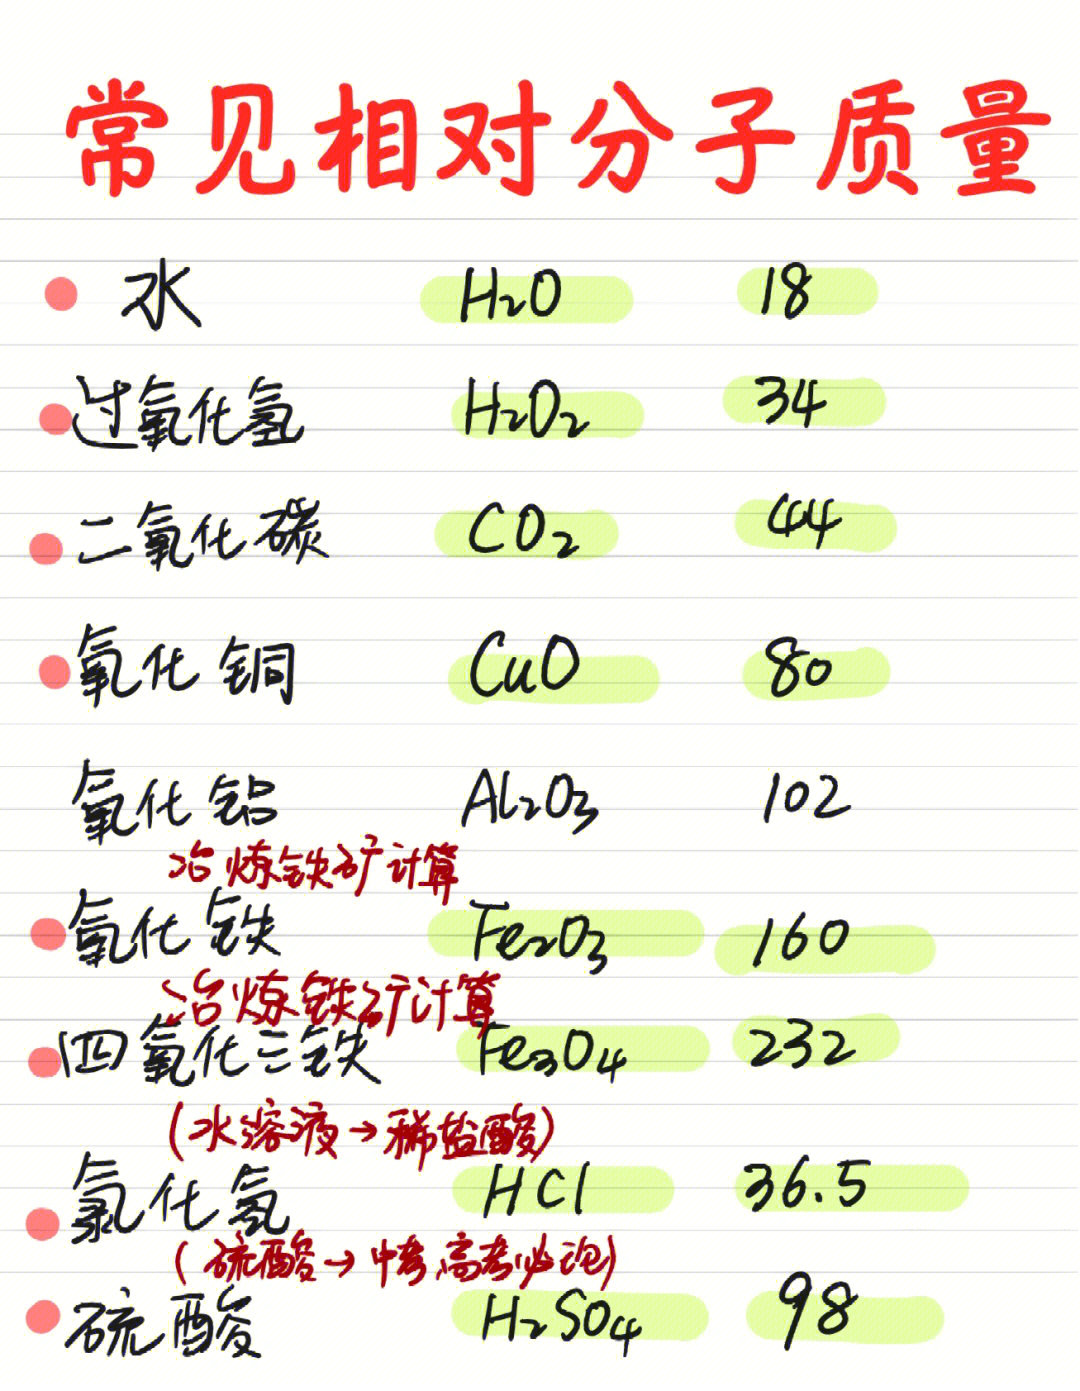 常见相对分子质量
水 H₂O 18
过氧化氢 H₂O₂ 34
二氧化碳 CO₂ 44
氧化铜 CuO 80
氧化铝 Al₂O₃ 102
冶炼铁矿计算
氧化铁 Fe₂O₃ 160
冶炼铁矿计算
四氧化三铁 Fe₃O₄ 232
(水溶液→稀盐酸)
氯化氢 HCl 36.5
(硫酸→中考高考必记)
硫酸 H₂SO₄ 98